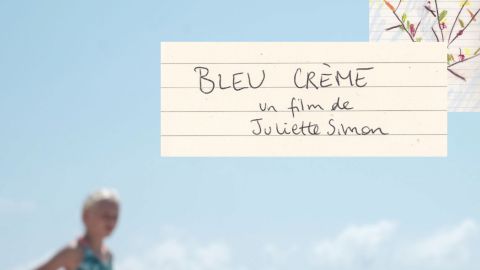 BLEU CRÈME
un film de
Juliette Simon